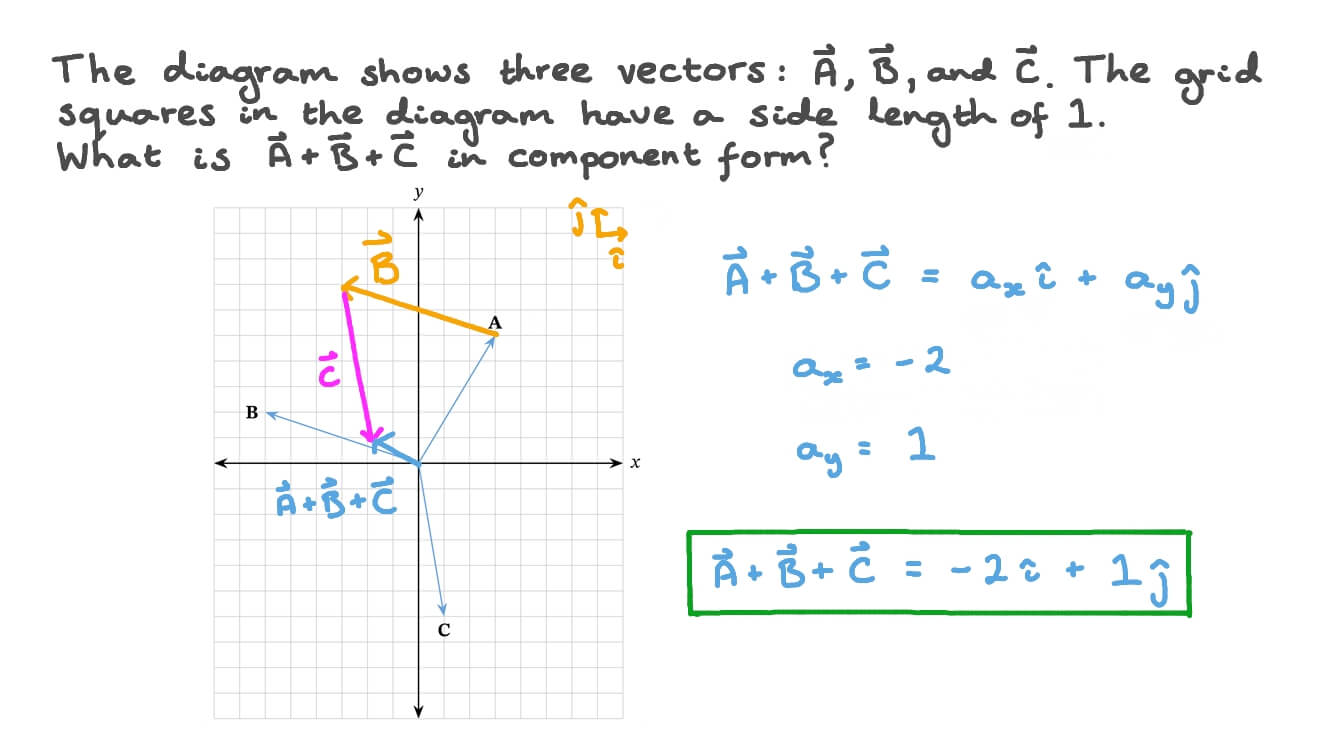 The diagram shows three vectors: A⃗, B⃗, and C⃗. The grid
squares in the diagram have a side length of 1.
What is A⃗ + B⃗ + C⃗ in component form?
y
ĵ
î
B⃗
A⃗ + B⃗ + C⃗ = aₓ î + a_y ĵ
A
C⃗
aₓ = -2
B
a_y = 1
x
A⃗ + B⃗ + C⃗
A⃗ + B⃗ + C⃗ = -2 î + 1 ĵ
C